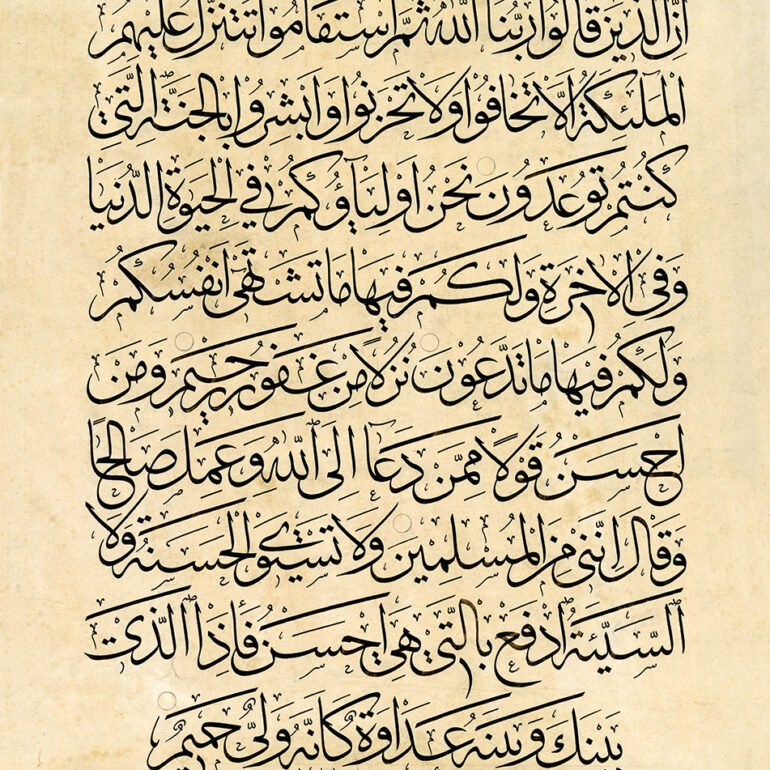 اِنَّ الَّذينَ قَالُوا رَبُّنَا اللّٰهُ ثُمَّ اسْتَقَامُوا تَتَنَزَّلُ عَلَيْهِمُ
الْمَلٰٓئِكَةُ اَلَّا تَخَافُوا وَلَا تَحْزَنُوا وَاَبْشِرُوا بِالْجَنَّةِ الَّتِي
كُنْتُمْ تُوعَدُونَ نَحْنُ اَوْلِيَآؤُكُمْ فِي الْحَيٰوةِ الدُّنْيَا
وَفِي الْاٰخِرَةِ وَلَكُمْ فِيهَا مَا تَشْتَهِي اَنْفُسُكُمْ
وَلَكُمْ فِيهَا مَا تَدَّعُونَ نُزُلًا مِنْ غَفُورٍ رَحِيمٍ وَمَنْ
اَحْسَنُ قَوْلًا مِمَّنْ دَعَآ اِلَى اللّٰهِ وَعَمِلَ صَالِحًا
وَقَالَ اِنَّنِي مِنَ الْمُسْلِمِينَ وَلَا تَسْتَوِي الْحَسَنَةُ وَلَا
السَّيِّئَةُ اِدْفَعْ بِالَّتِي هِيَ اَحْسَنُ فَاِذَا الَّذِي
بَيْنَكَ وَبَيْنَهُ عَدَاوَةٌ كَاَنَّهُ وَلِيٌّ حَمِيمٌ